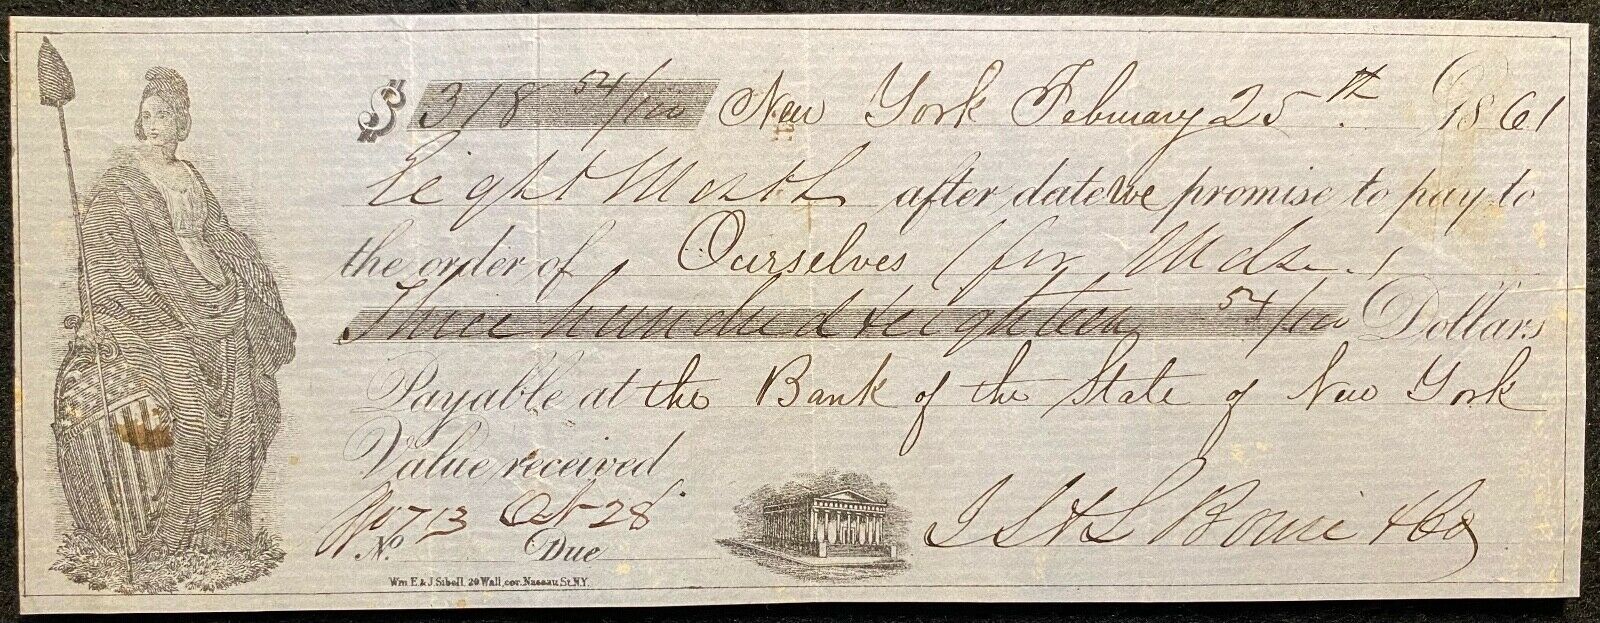 $ 318 54/100 New York February 25th 1861
Eight Month after date We promise to pay to
the order of Ourselves (for Mdse.)
Three hundred & eighteen 54/100 Dollars
Payable at the Bank of the State of New York
Value received
No. 713 Oct 28 Due
J S & L Bowie & Co
Wm E & J Sibell. 20 Wall, cor. Nassau St. N.Y.